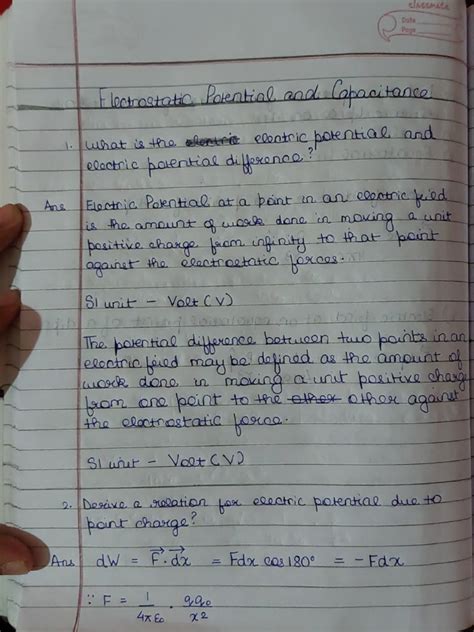 classmate
Date
Page
Electrostatic Potential and Capacitance
1. What is the electric electric potential and
electric potential difference?
Ans Electric Potential at a point in an electric field
is the amount of work done in moving a unit
positive charge from infinity to that point
against the electrostatic forces.
SI unit - Volt (V)
The potential difference between two points in an
electric field may be defined as the amount of
work done in moving a unit positive charge
from one point to the other other against
the electrostatic force.
SI unit - Volt (V)
2. Derive a relation for electric potential due to
point charge?
Ans dW = F⃗·dx⃗ = Fdx cos 180° = -Fdx
∵ F = 1/4πε₀ · qq₀/x²